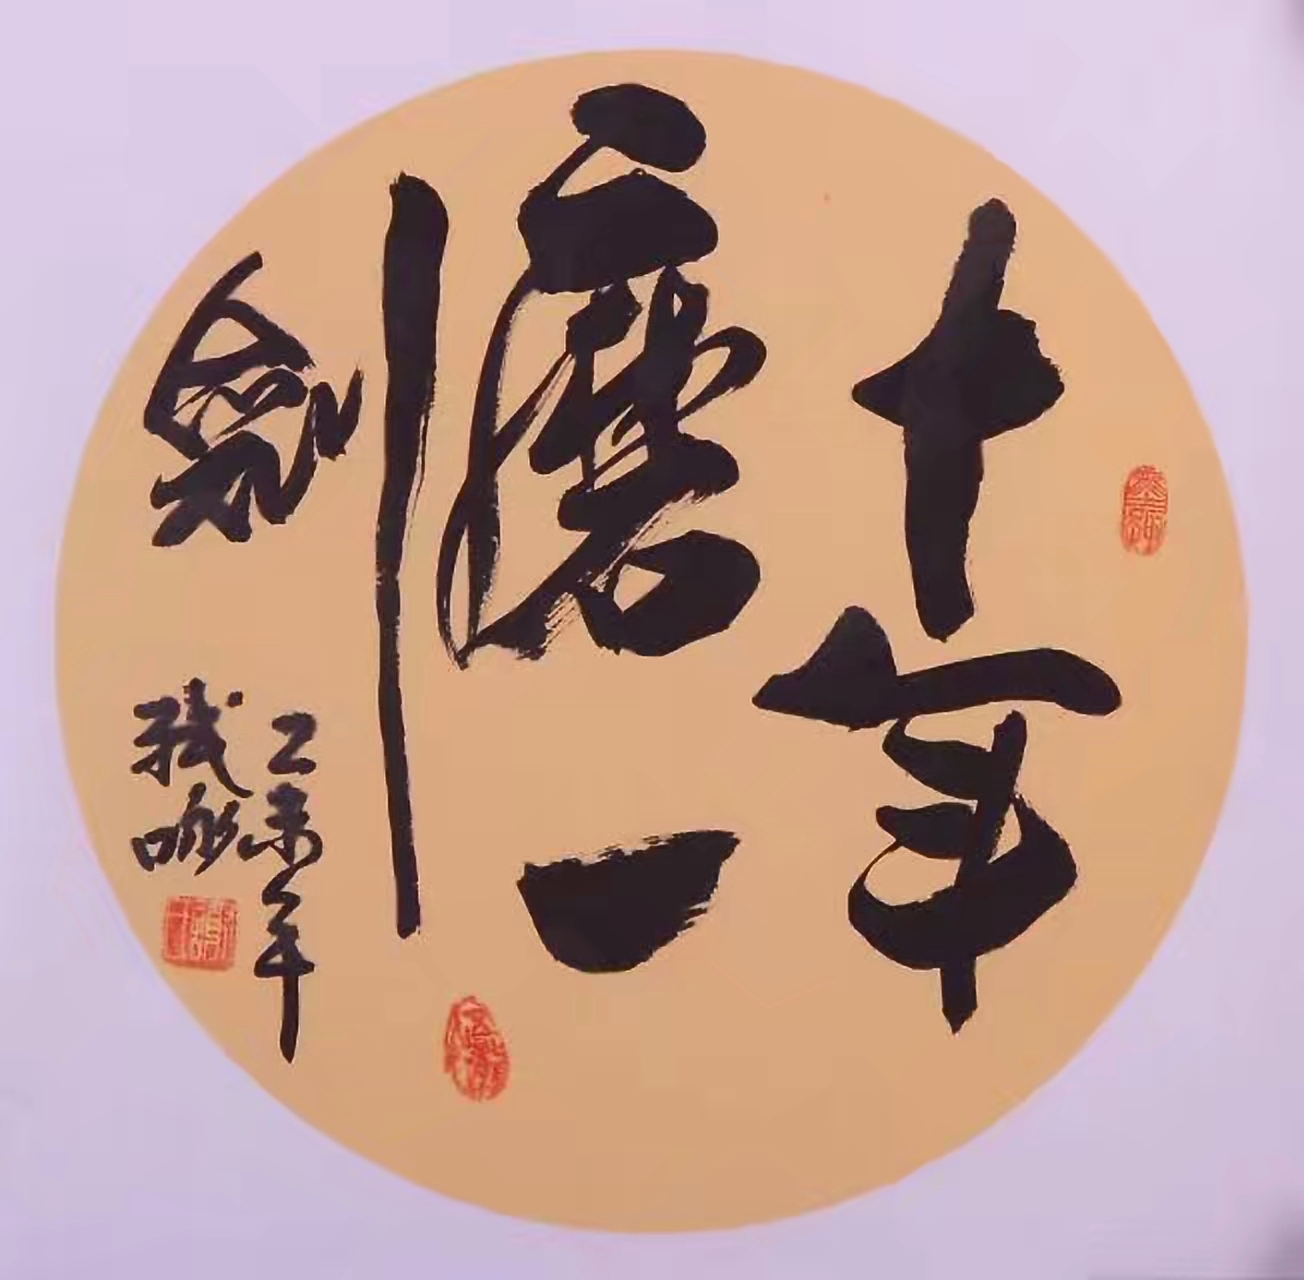 十年
磨一
劍
乙未年